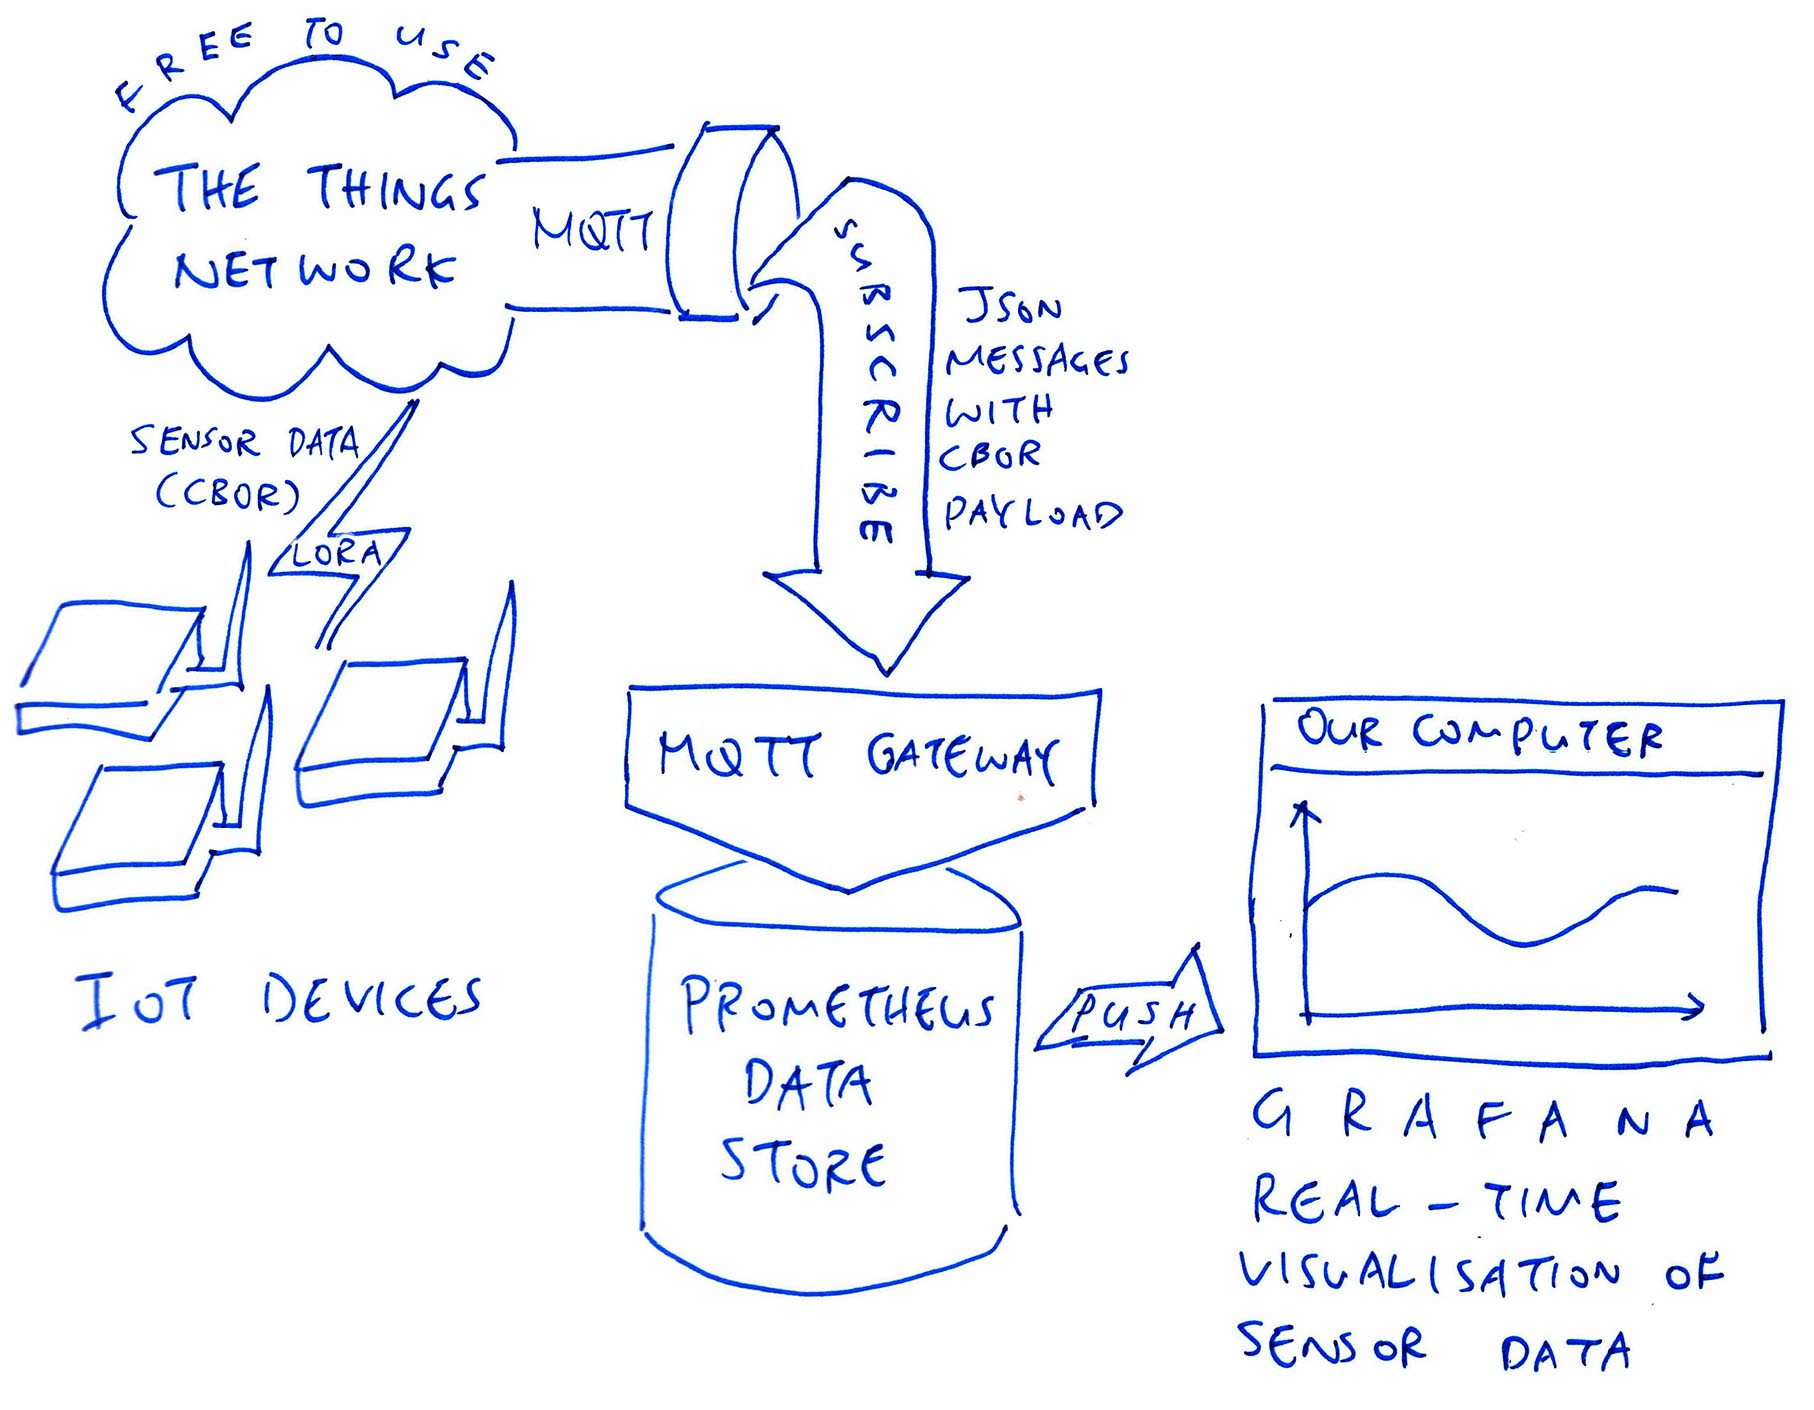 FREE TO USE
THE THINGS
NETWORK
MQTT
SUBSCRIBE
JSON
MESSAGES
WITH
CBOR
PAYLOAD
SENSOR DATA
(CBOR)
LORA
IOT DEVICES
MQTT GATEWAY
PROMETHEUS
DATA
STORE
PUSH
OUR COMPUTER
GRAFANA
REAL-TIME
VISUALISATION OF
SENSOR DATA